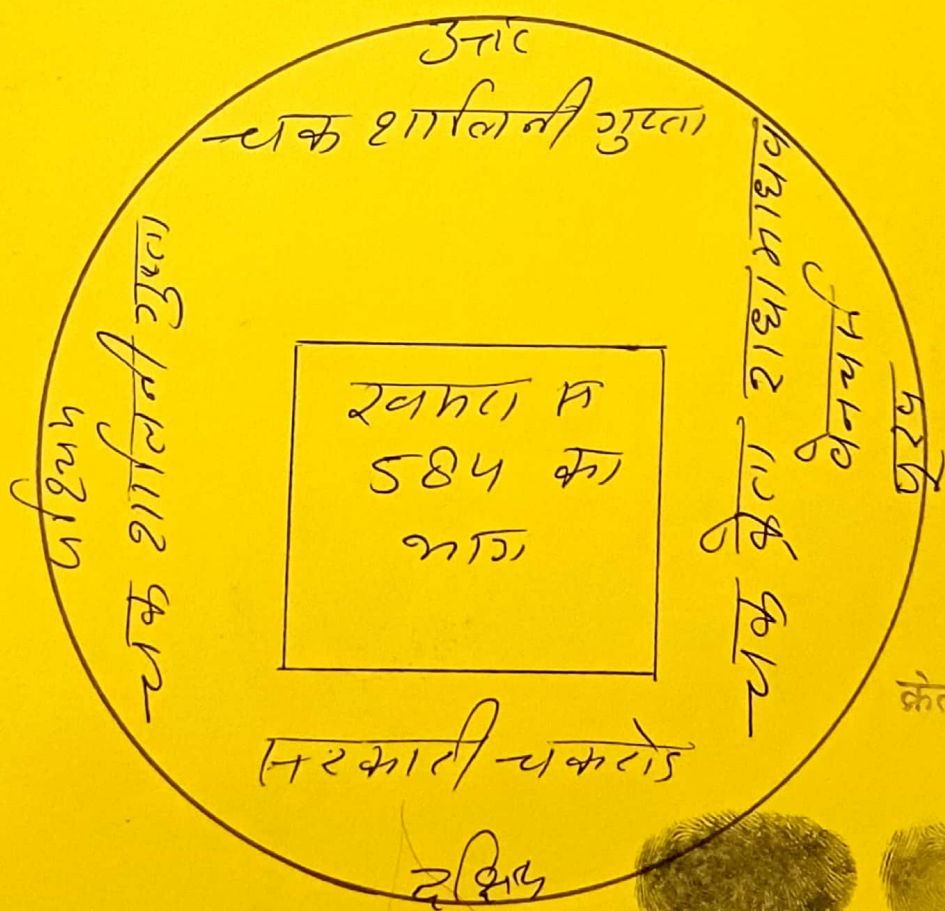 उत्तर
चक शालिनी गुप्ता
पश्चिम
चक शालिनी गुप्ता
खसरा सं
584 का
भाग
चक क्रेता राधामाधव
वेन्चर्स
पूरब
सरकारी चकरोड
दक्षिण